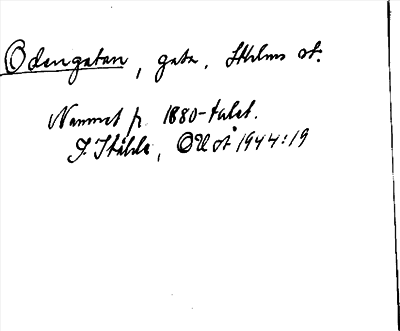 Odengatan, gata, Sthlms st.
Namnet fr. 1880-talet.
J. Ståhle, OUÅ 1944:19